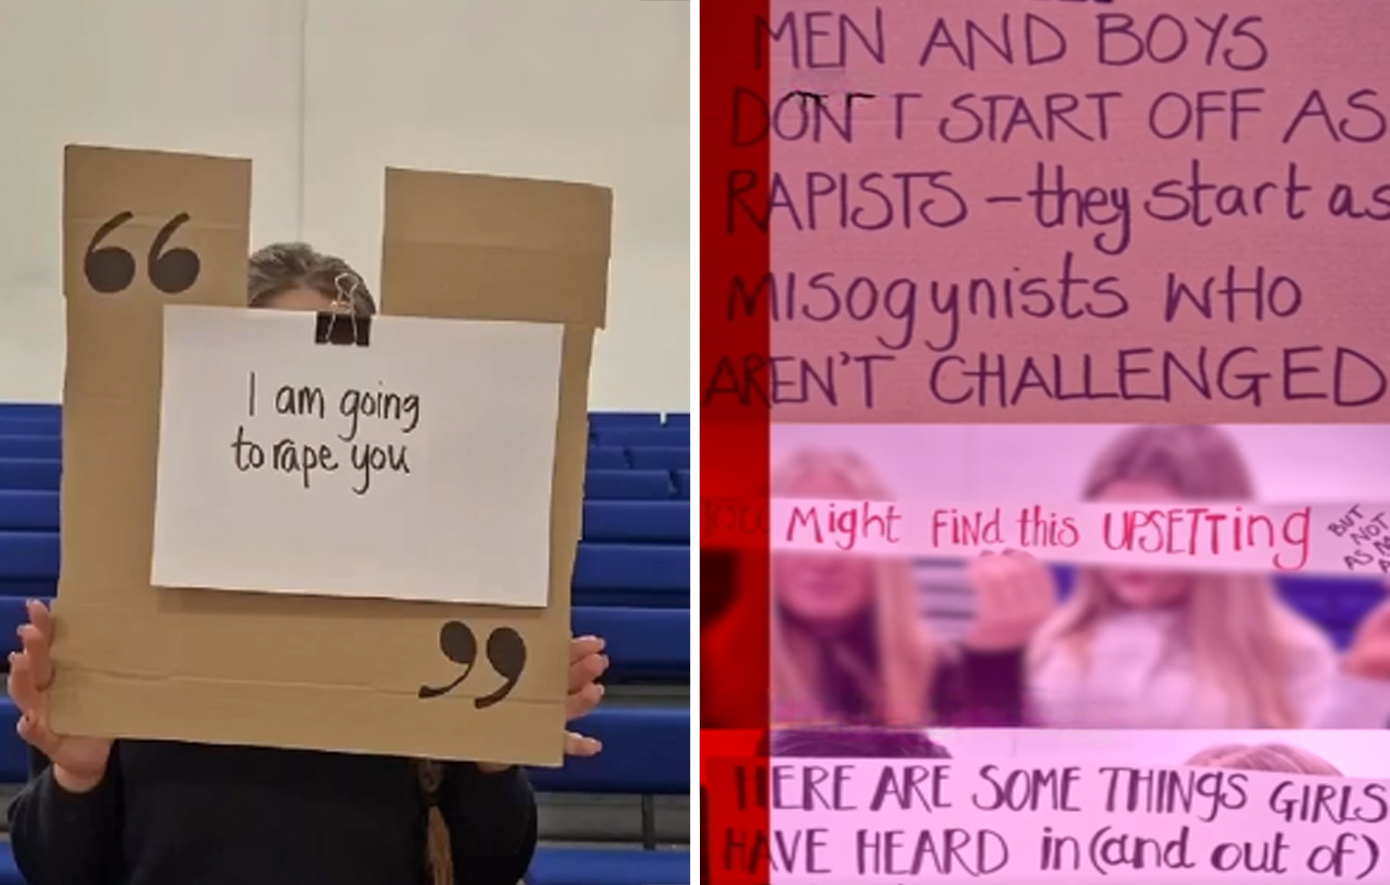 “
I am going
to rape you
”
MEN AND BOYS
DON'T START OFF AS
RAPISTS – they start as
MISOgynists WHO
AREN'T CHALLENGED
Might FiNd this UPSETTing
BUT
NOT
AS
HERE ARE SOME THINgs GIRLS
HAVE HEARD in (and out of)